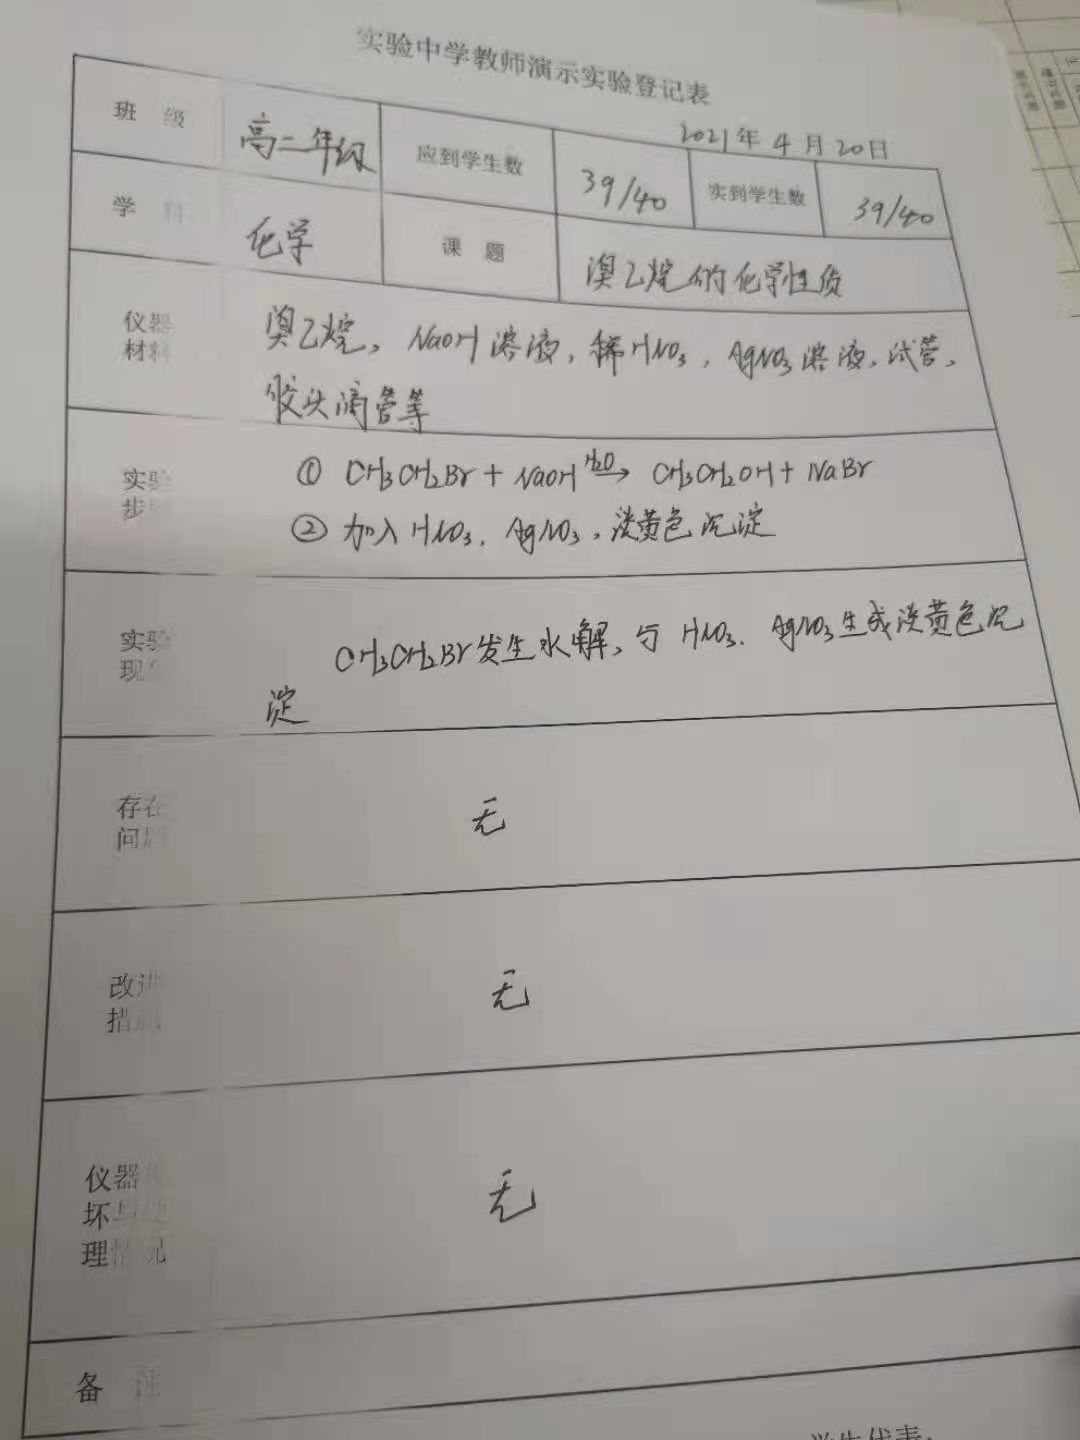 实验中学教师演示实验登记表
2021年4月20日
班 级 高二年级 应到学生数 39/40 实到学生数 39/40
学 科 化学 课 题 溴乙烷的化学性质
仪器
材料
溴乙烷，NaOH溶液，稀HNO₃，AgNO₃溶液，试管，
胶头滴管等
实验
步
① CH₃CH₂Br + NaOH →(H₂O) CH₃CH₂OH + NaBr
② 加入HNO₃、AgNO₃，淡黄色沉淀
实验
现
CH₃CH₂Br发生水解，与 HNO₃、AgNO₃生成淡黄色沉
淀
存在
问
无
改进
措
无
仪器
坏与处
理情况
无
备 注
学生代表：